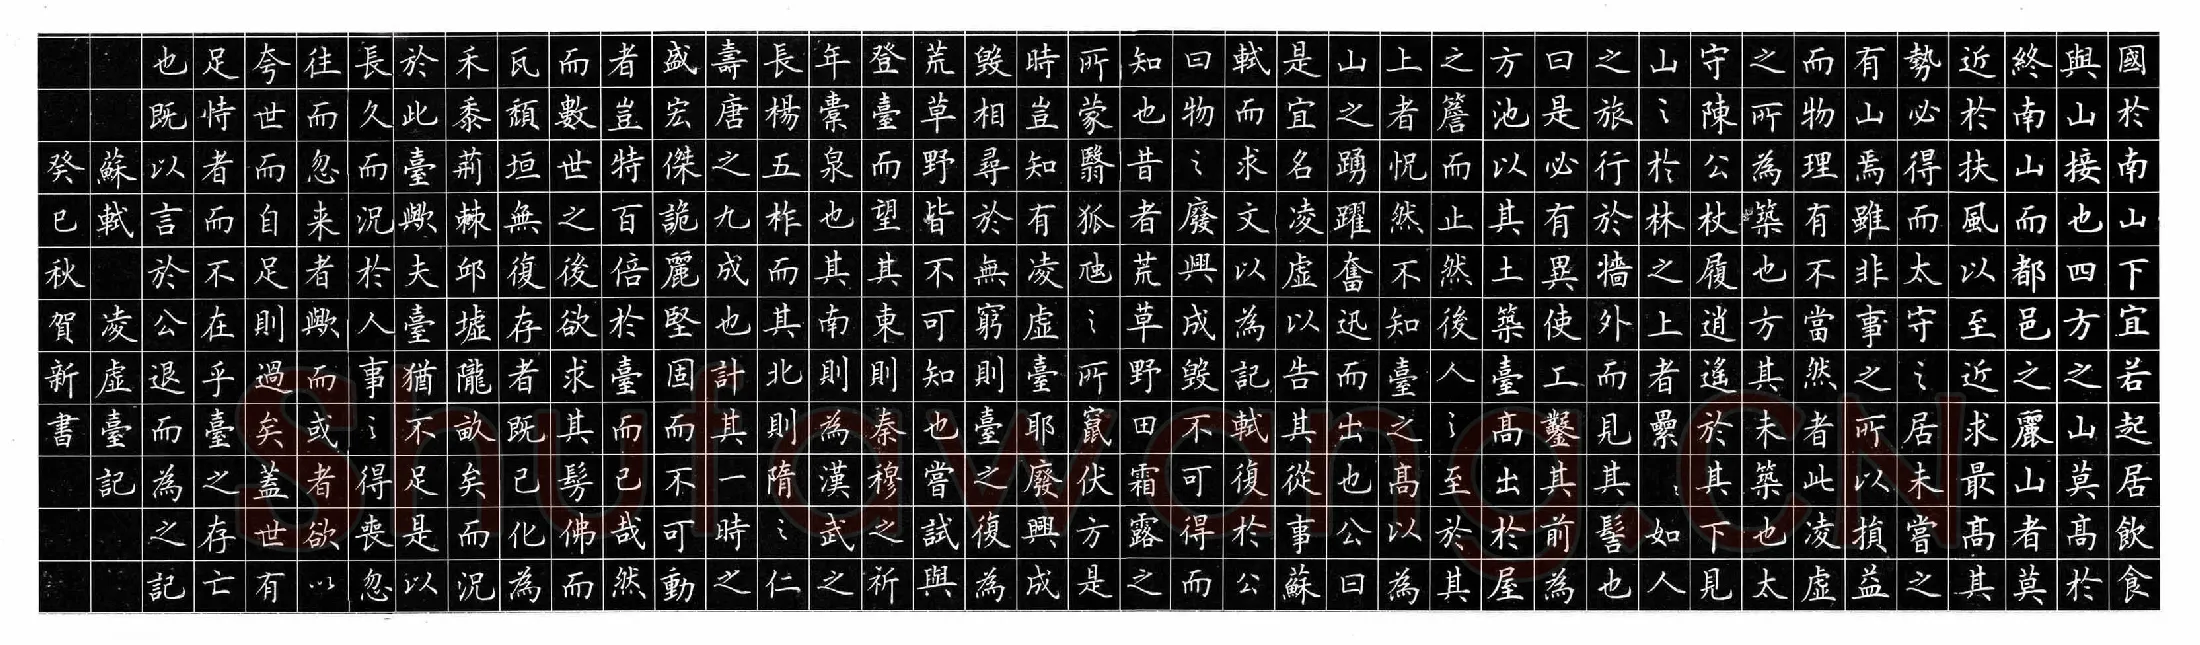 國於南山下宜若起居飲食
與山接也四方之山莫高於
終南山而都邑之麗山者莫
近於扶風以至近求最高其
勢必得而太守〻居未嘗之
有山焉雖非事之所以損益
而物理有不當然者此凌虛
之所為築也方其未築也太
守陳公杖履逍遙於其下見
山〻於林之上者纍〻如人
之旅行於牆外而見其髻也
曰是必有異使工鑿其前為
方池以其土築臺高出於屋
之簷而止然後人〻至於其
上者怳然不知臺之高以為
山之踴躍奮迅而出也公曰
是宜名凌虛以告其從事蘇
軾而求文以為記軾復於公
曰物〻廢興成毀不可得而
知也昔者荒草野田霜露之
所蒙翳狐虺〻所竄伏方是
時豈知有凌虛臺耶廢興成
毀相尋於無窮則臺之復為
荒草野皆不可知也嘗試與
登臺而望其東則秦穆之祈
年橐泉也其南則為漢武之
長楊五柞而其北則隋〻仁
壽唐之九成也計其一時之
盛宏傑詭麗堅固而不可動
者豈特百倍於臺而已哉然
而數世之後欲求其髣佛而
瓦頹垣無復存者既已化為
禾黍荊棘邱墟隴畝矣而況
於此臺歟夫臺猶不足是以
長久而況於人事〻得喪忽
往而忽来者歟而或者欲以
夸世而自足則過矣蓋世有
足恃者而不在乎臺之存亡
也既以言於公退而為之記
蘇軾 凌虛臺記
癸巳秋賀新書
Shufawang.CN